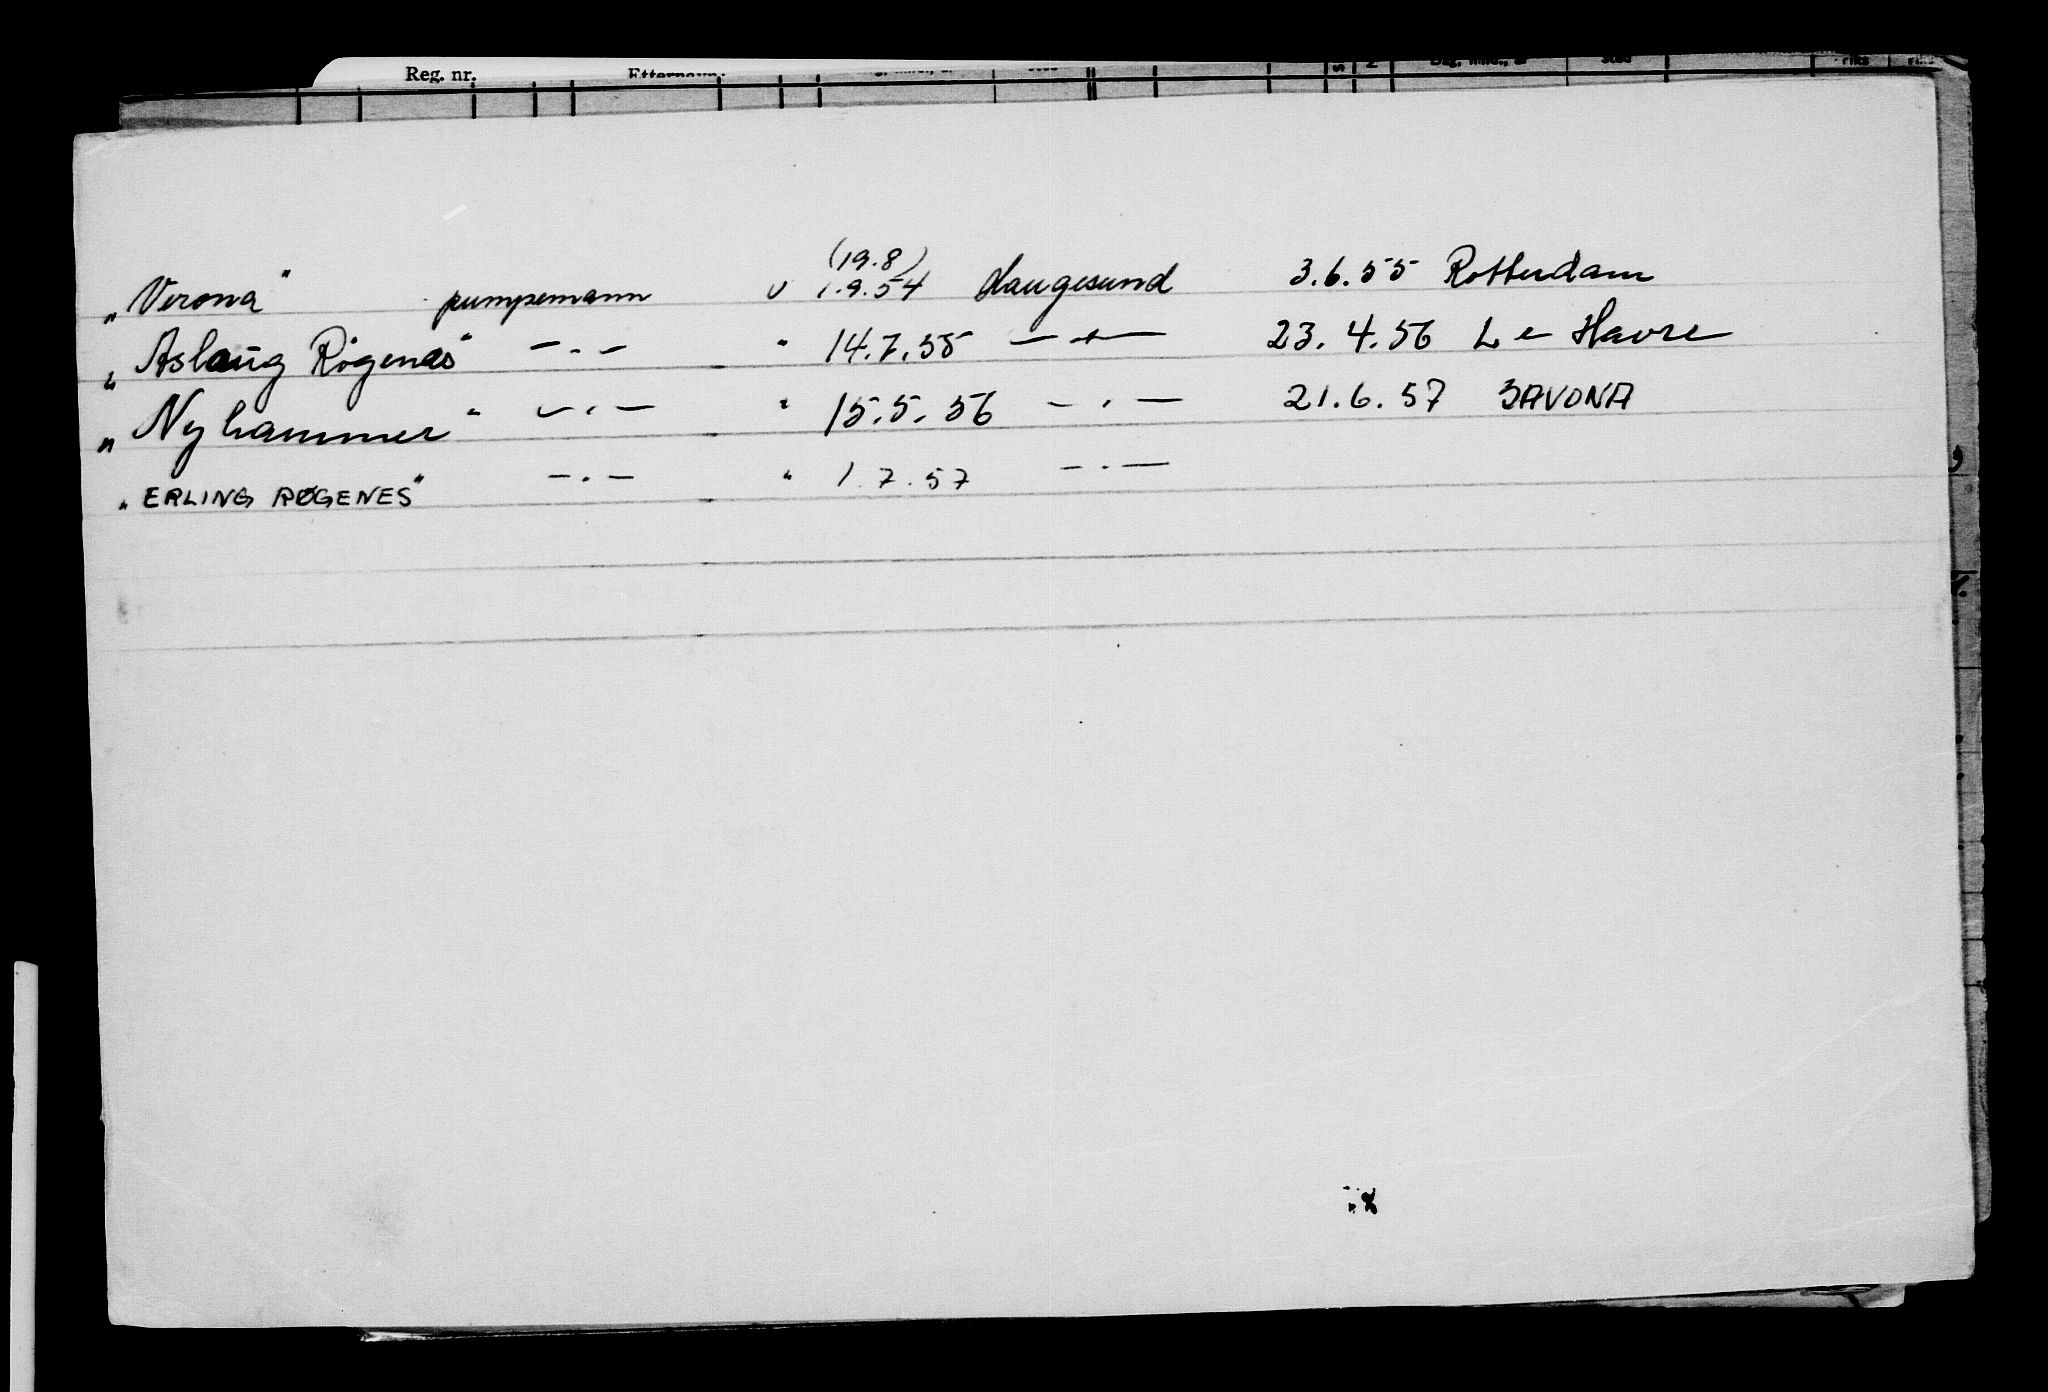 Reg. nr. Etternavn.
(19.8)
„Verona" pumpemann u 1.9.54 Haugesund 3.6.55 Rotterdam
„Aslaug Røgenæs" — . — " 14.7.55 — . — 23.4.56 Le Havre
„Nyhammer" — . — " 15.5.56 — . — 21.6.57 SAVONA
„ERLING RØGENES" — . — " 1.7.57 — . —